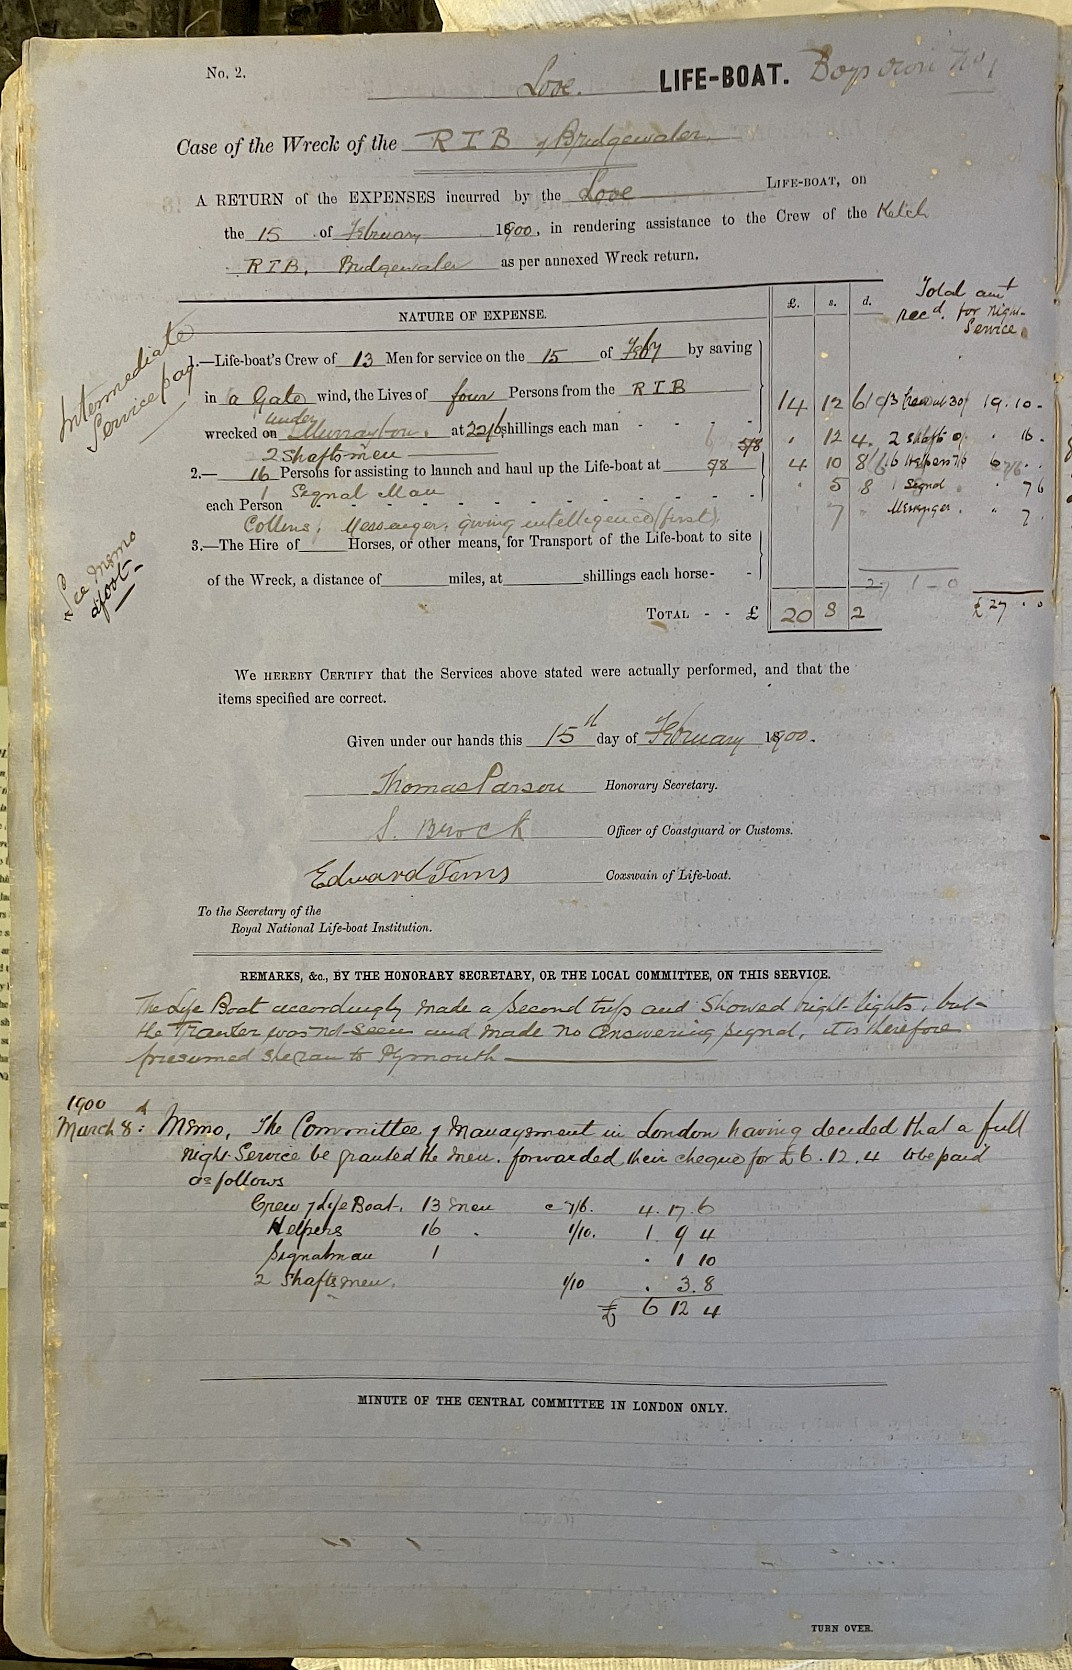 No. 2.
Looe. LIFE-BOAT. Boys own No 1
Case of the Wreck of the R T B of Bridgewater.
A RETURN of the EXPENSES incurred by the Looe LIFE-BOAT, on
the 15 of February 1900, in rendering assistance to the Crew of the Ketch
R T B, Bridgewater as per annexed Wreck return.
NATURE OF EXPENSE. £. s. d. Total amt
recd. for Night-
Service
Intermediate
Service pay
1.—Life-boat's Crew of 13 Men for service on the 15 of Feby by saving
in a Gale wind, the Lives of four Persons from the R T B 14 12 6 13 Crew at 30/ 19. 10 -
under
wrecked on at 22/6 shillings each man - - - - 12 4. 2 shafts 16 -
2 Shaftsmen
2.— 16 Persons for assisting to launch and haul up the Life-boat at 5/8 4 10 8 16 Helpers 7/6
1 Signal Man
each Person 5 8 1 Signal 7 6
Collins, Messenger, giving intelligence (first) 7 Messenger 7
3.—The Hire of Horses, or other means, for Transport of the Life-boat to site
of the Wreck, a distance of miles, at shillings each horse - - 27 1 - 0
See Memo
afoot -
TOTAL - - £ 20 8 2 £ 27 . . 0
We HEREBY CERTIFY that the Services above stated were actually performed, and that the
items specified are correct.
Given under our hands this 15d day of February 1900.
Thomas Parson Honorary Secretary.
S. Brock Officer of Coastguard or Customs.
Edward Toms Coxswain of Life-boat.
To the Secretary of the
Royal National Life-boat Institution.
REMARKS, &c., BY THE HONORARY SECRETARY, OR THE LOCAL COMMITTEE, ON THIS SERVICE.
The Life Boat accordingly made a Second trip and Showed bright lights, but
the Trawler was not seen and made no answering signal, it is therefore
presumed she ran to Plymouth
1900
March 8d: Memo, The Committee of Management in London having decided that a full
night Service be granted the men. forwarded their cheque for £6. 12. 4 to be paid
as follows
Crew of Life Boat. 13 men @ 7/6. 4. 17. 6
Helpers 16 . 1/10. 1 9 4
Signalman 1 . 1 10
2 Shaftsmen. 1/10 . 3. 8
£ 6 12 4
MINUTE OF THE CENTRAL COMMITTEE IN LONDON ONLY.
TURN OVER.